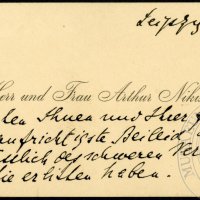 Leipzig
Herr und Frau Arthur Niki
Ihnen und Ihrer
aufrichtigste Beileid
des schweren Ver
Sie erlitten haben.